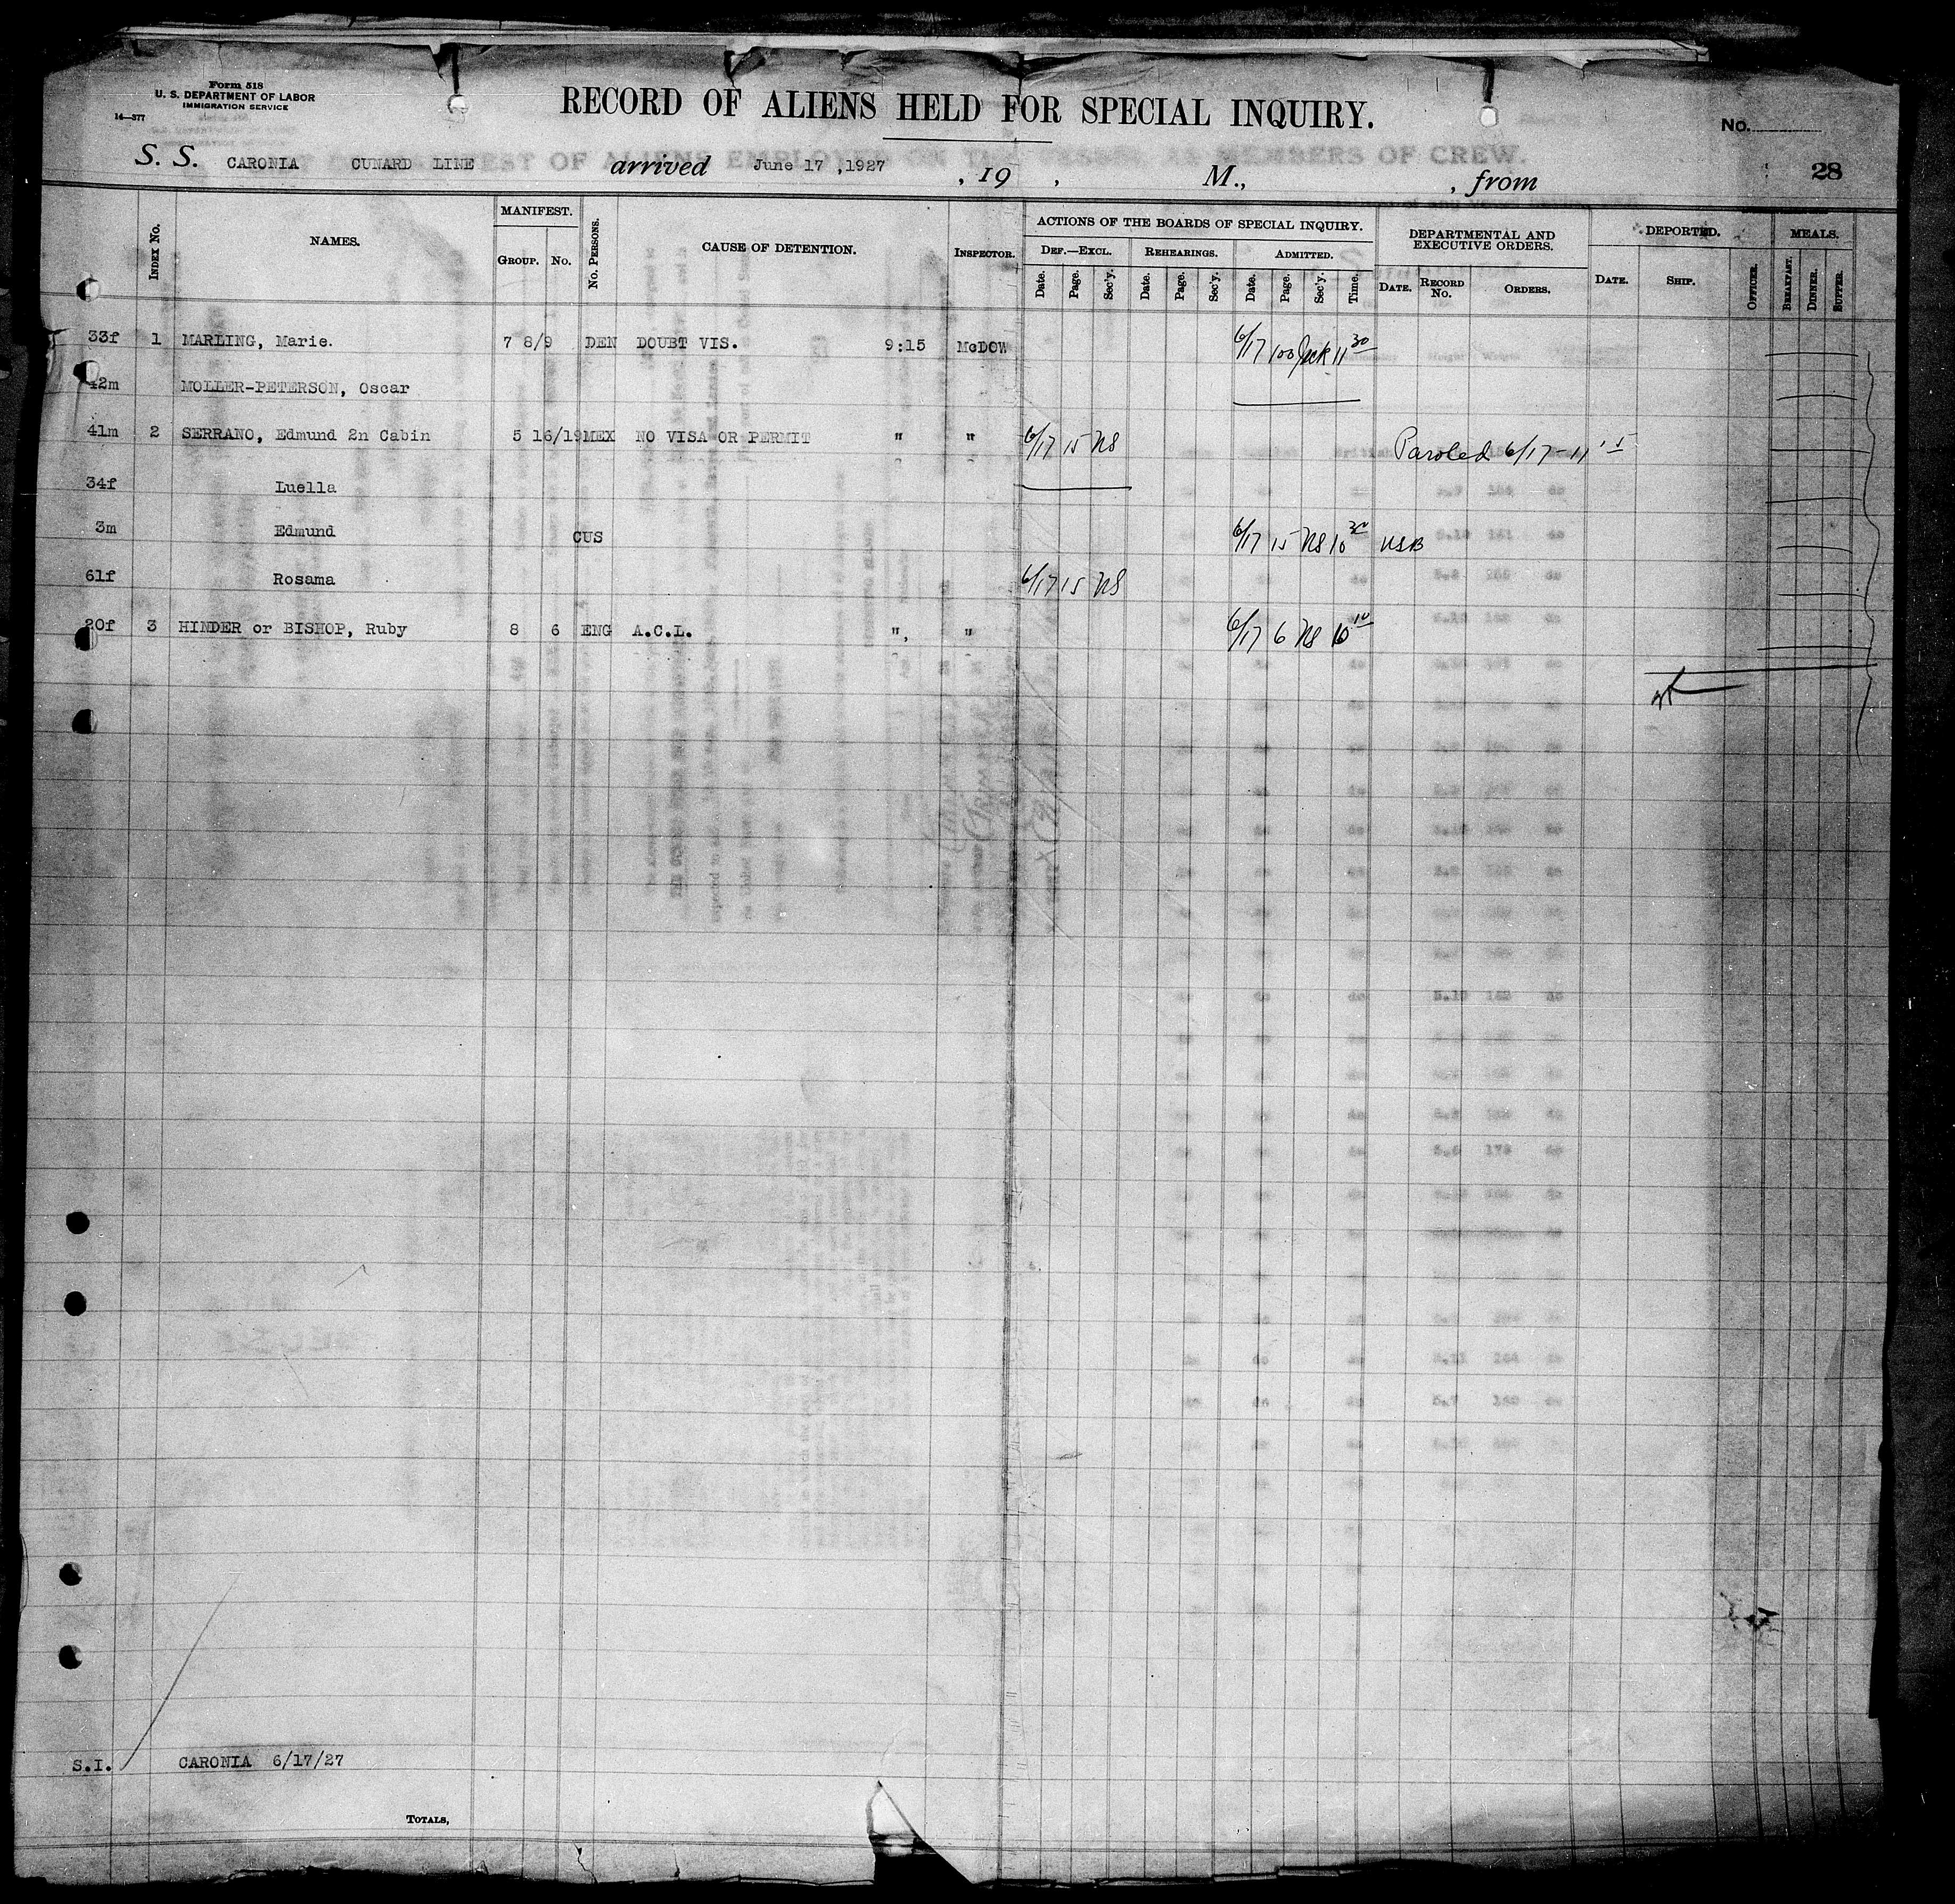 Form 518
U. S. DEPARTMENT OF LABOR
IMMIGRATION SERVICE
14—377
RECORD OF ALIENS HELD FOR SPECIAL INQUIRY.
No.
S. S. CARONIA CUNARD LINE arrived June 17, 1927, 19 , M., , from
28
Index No. NAMES. MANIFEST. Group. No. No. Persons. CAUSE OF DETENTION. Inspector. ACTIONS OF THE BOARDS OF SPECIAL INQUIRY. DEPARTMENTAL AND EXECUTIVE ORDERS. DEPORTED. MEALS.
Def.—Excl. Rehearings. Admitted.
Date. Page. Sec'y. Date. Page. Sec'y. Date. Page. Sec'y. Time. Date. Record No. Orders. Date. Ship. Officer. Breakfast. Dinner. Supper.
33f 1 MARLING, Marie. 7 8/9 DEN DOUBT VIS. 9:15 McDOW 6/17 100 11 30
42m MOLLER-PETERSON, Oscar
41m 2 SERRANO, Edmund 2n Cabin 5 16/19 MEX NO VISA OR PERMIT " " 6/17 15 NS Paroled 6/17-11 15
34f Luella
3m Edmund CUS 6/17 15 NS 10 30 USB
61f Rosama 6/17 15 NS
20f 3 HINDER or BISHOP, Ruby 8 6 ENG A.C.L. " " 6/17 6 NS 10 10
S.I. CARONIA 6/17/27
Totals,